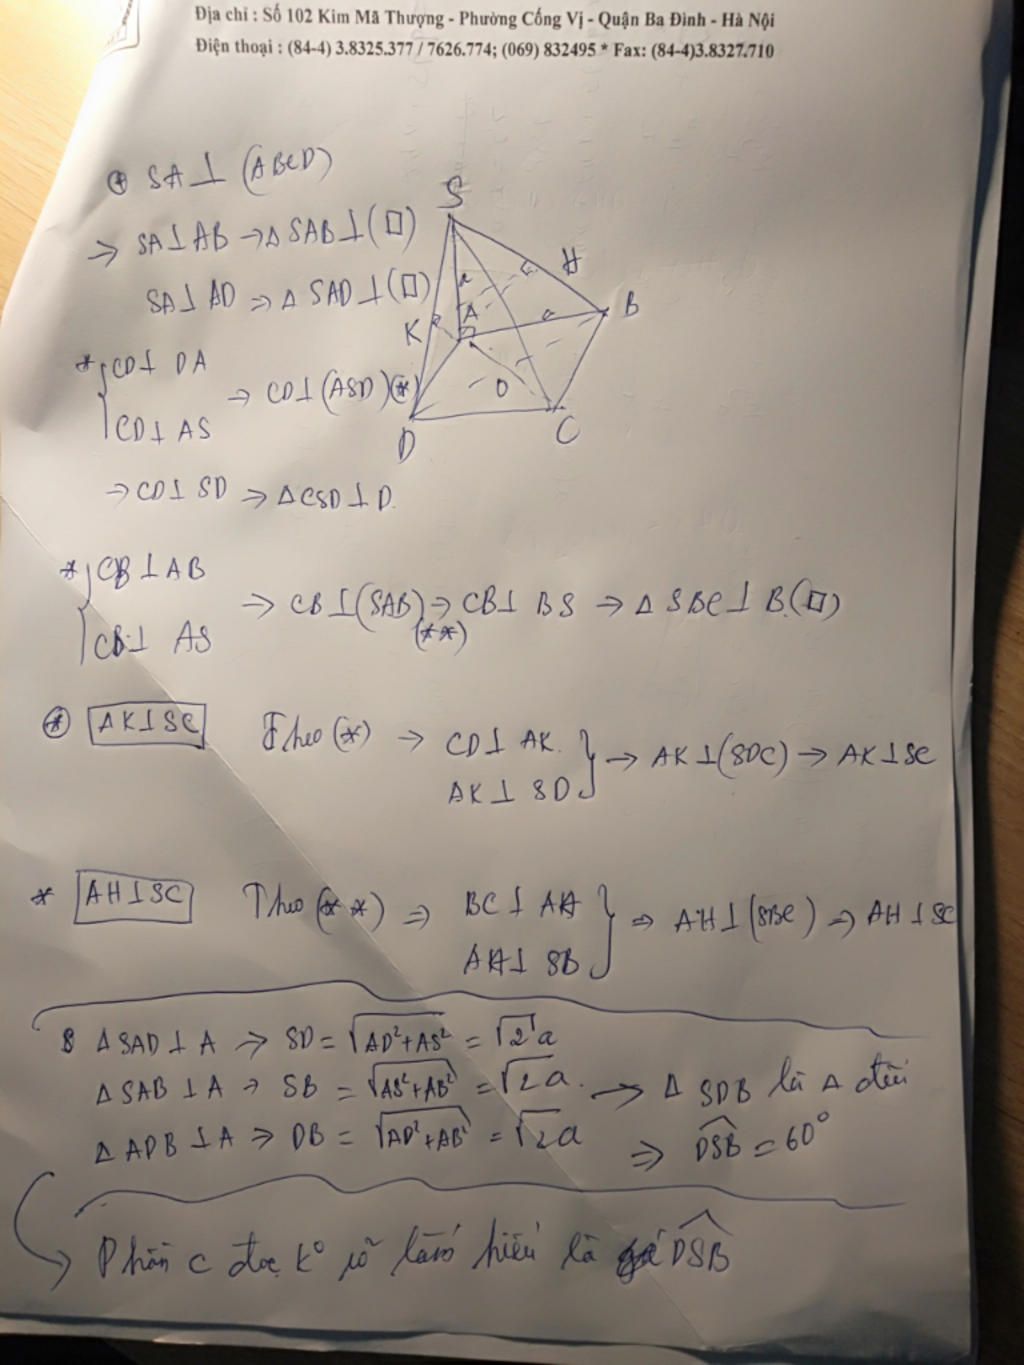 Địa chỉ : Số 102 Kim Mã Thượng - Phường Cống Vị - Quận Ba Đình - Hà Nội
Điện thoại : (84-4) 3.8325.377 / 7626.774; (069) 832495 * Fax: (84-4)3.8327.710
⊛ SA⊥ (ABCD)
⇒ SA⊥AB → Δ SAB⊥(□)
SA⊥ AD ⇒ Δ SAD⊥(□)
S
a
H
A
a
B
K
O
D
C
* { CD⊥ DA
CD⊥ AS
⇒ CD⊥(ASD)(*)
⇒ CD⊥ SD ⇒ Δ CSD ⊥ D.
* { CB ⊥ AB
CB⊥ AS
⇒ CB⊥(SAB) ⇒ CB⊥ BS ⇒ Δ SBC⊥ B(□)
(**)
⊛ AK⊥SC Theo (*) → CD⊥ AK. } → AK⊥(SDC) → AK⊥SC
AK⊥ SD
* AH⊥SC Theo (**) ⇒ BC⊥ AH } ⇒ AH⊥(SBC) ⇒ AH⊥SC
AH⊥ SB
Δ SAD ⊥ A ⇒ SD = √AD²+AS² = √2 a
Δ SAB ⊥ A → SB = √AS²+AB² = √2 a. → Δ SDB là Δ đều
Δ ADB ⊥ A ⇒ DB = √AD²+AB² = √2 a ⇒ DSB = 60°
Phần c đọc k° rõ lắm hiểu là DSB